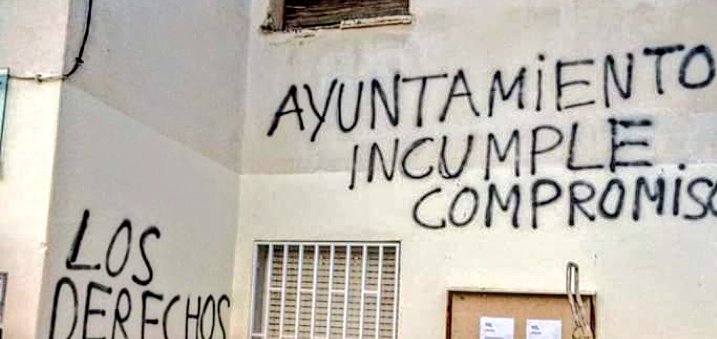 AYUNTAMIENTO
INCUMPLE
COMPROMISO
LOS
DERECHOS